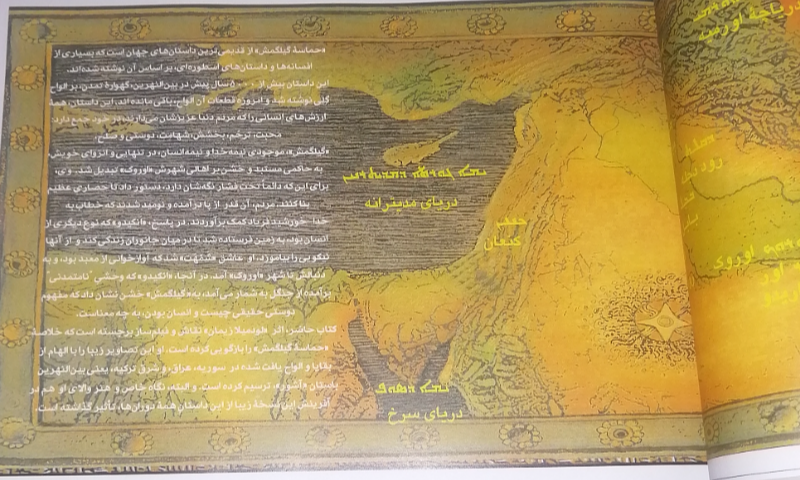 «حماسهٔ گیلگمش» از قدیمی‌ترین داستان‌های جهان است که بسیاری از
افسانه‌ها و داستان‌های اسطوره‌ای، بر اساس آن نوشته شده‌اند.
این داستان بیش از ۵۰۰۰ سال پیش در بین‌النهرین، گهوارهٔ تمدن، بر الواح
گلی نوشته شد و امروزه قطعات آن الواح، باقی مانده اند. این داستان، همهٔ
ارزش‌های انسانی را که مردم دنیا عزیزشان می‌دارند در خود جمع دارد:
محبت، ترحم، بخشش، شهامت، دوستی و صلح.
«گیلگمش»، موجودی نیمه‌خدا و نیمه‌انسان، در تنهایی و انزوای خویش،
به حاکمی مستبد و خشن بر اهالی شهرش «اوروک» تبدیل شد. وی،
برای این که دائماً تحت فشار نگه‌شان دارد، دستور داد تا حصاری عظیم
بنا کنند. مردم، آن قدر از پا درآمده و نومید شدند که خطاب به
خدا خورشید فریاد کمک برآوردند. در پاسخ، «انکیدو» که نوع دیگری از
انسان بود، به زمین فرستاده شد تا در میان جانوران زندگی کند و از آنها
نیکویی را بیاموزد. او عاشق «شمّهت» شد که آوازخوانی از معبد بود و به
دنبالش تا شهر «اوروک» آمد. در آنجا، «انکیدو» که وحشیِ "نامتمدنی"
برآمده از جنگل به شمار می‌آمد، به «گیلگمش» خشن نشان داد که مفهوم
دوستی حقیقی چیست و انسان بودن، به چه معناست.
کتاب حاضر، اثر «لودمیلا زیمان» نقاش و فیلم‌ساز برجسته است که خلاصهٔ
«حماسهٔ گیلگمش» را بازگویی کرده است. او این تصاویر زیبا را با الهام از
بقایا و الواح یافت شده در سوریه، عراق، و شرق ترکیه، یعنی بین‌النهرین
باستان «آشور»، ترسیم کرده است. و البته، نگاه خاص و هنر والای او هم در
آفرینش این نسخهٔ زیبا از این داستان همهٔ دوران‌ها، تأثیر گذاشته است.
دریای مدیترانه
کنعان
دریای سرخ
دریاچهٔ اورمیه
رود
اوروک
اور